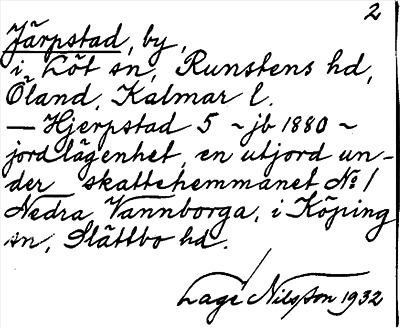 2
Järpstad, by,
i Löt sn, Runstens hd,
Öland, Kalmar l.
— Hjerpstad 5 ~ jb 1880 ~
jordlägenhet, en utjord un-
der skattehemmanet No 1
Nedra Vannborga, i Köping
sn, Slättbo hd.
Lage Nilsson 1932